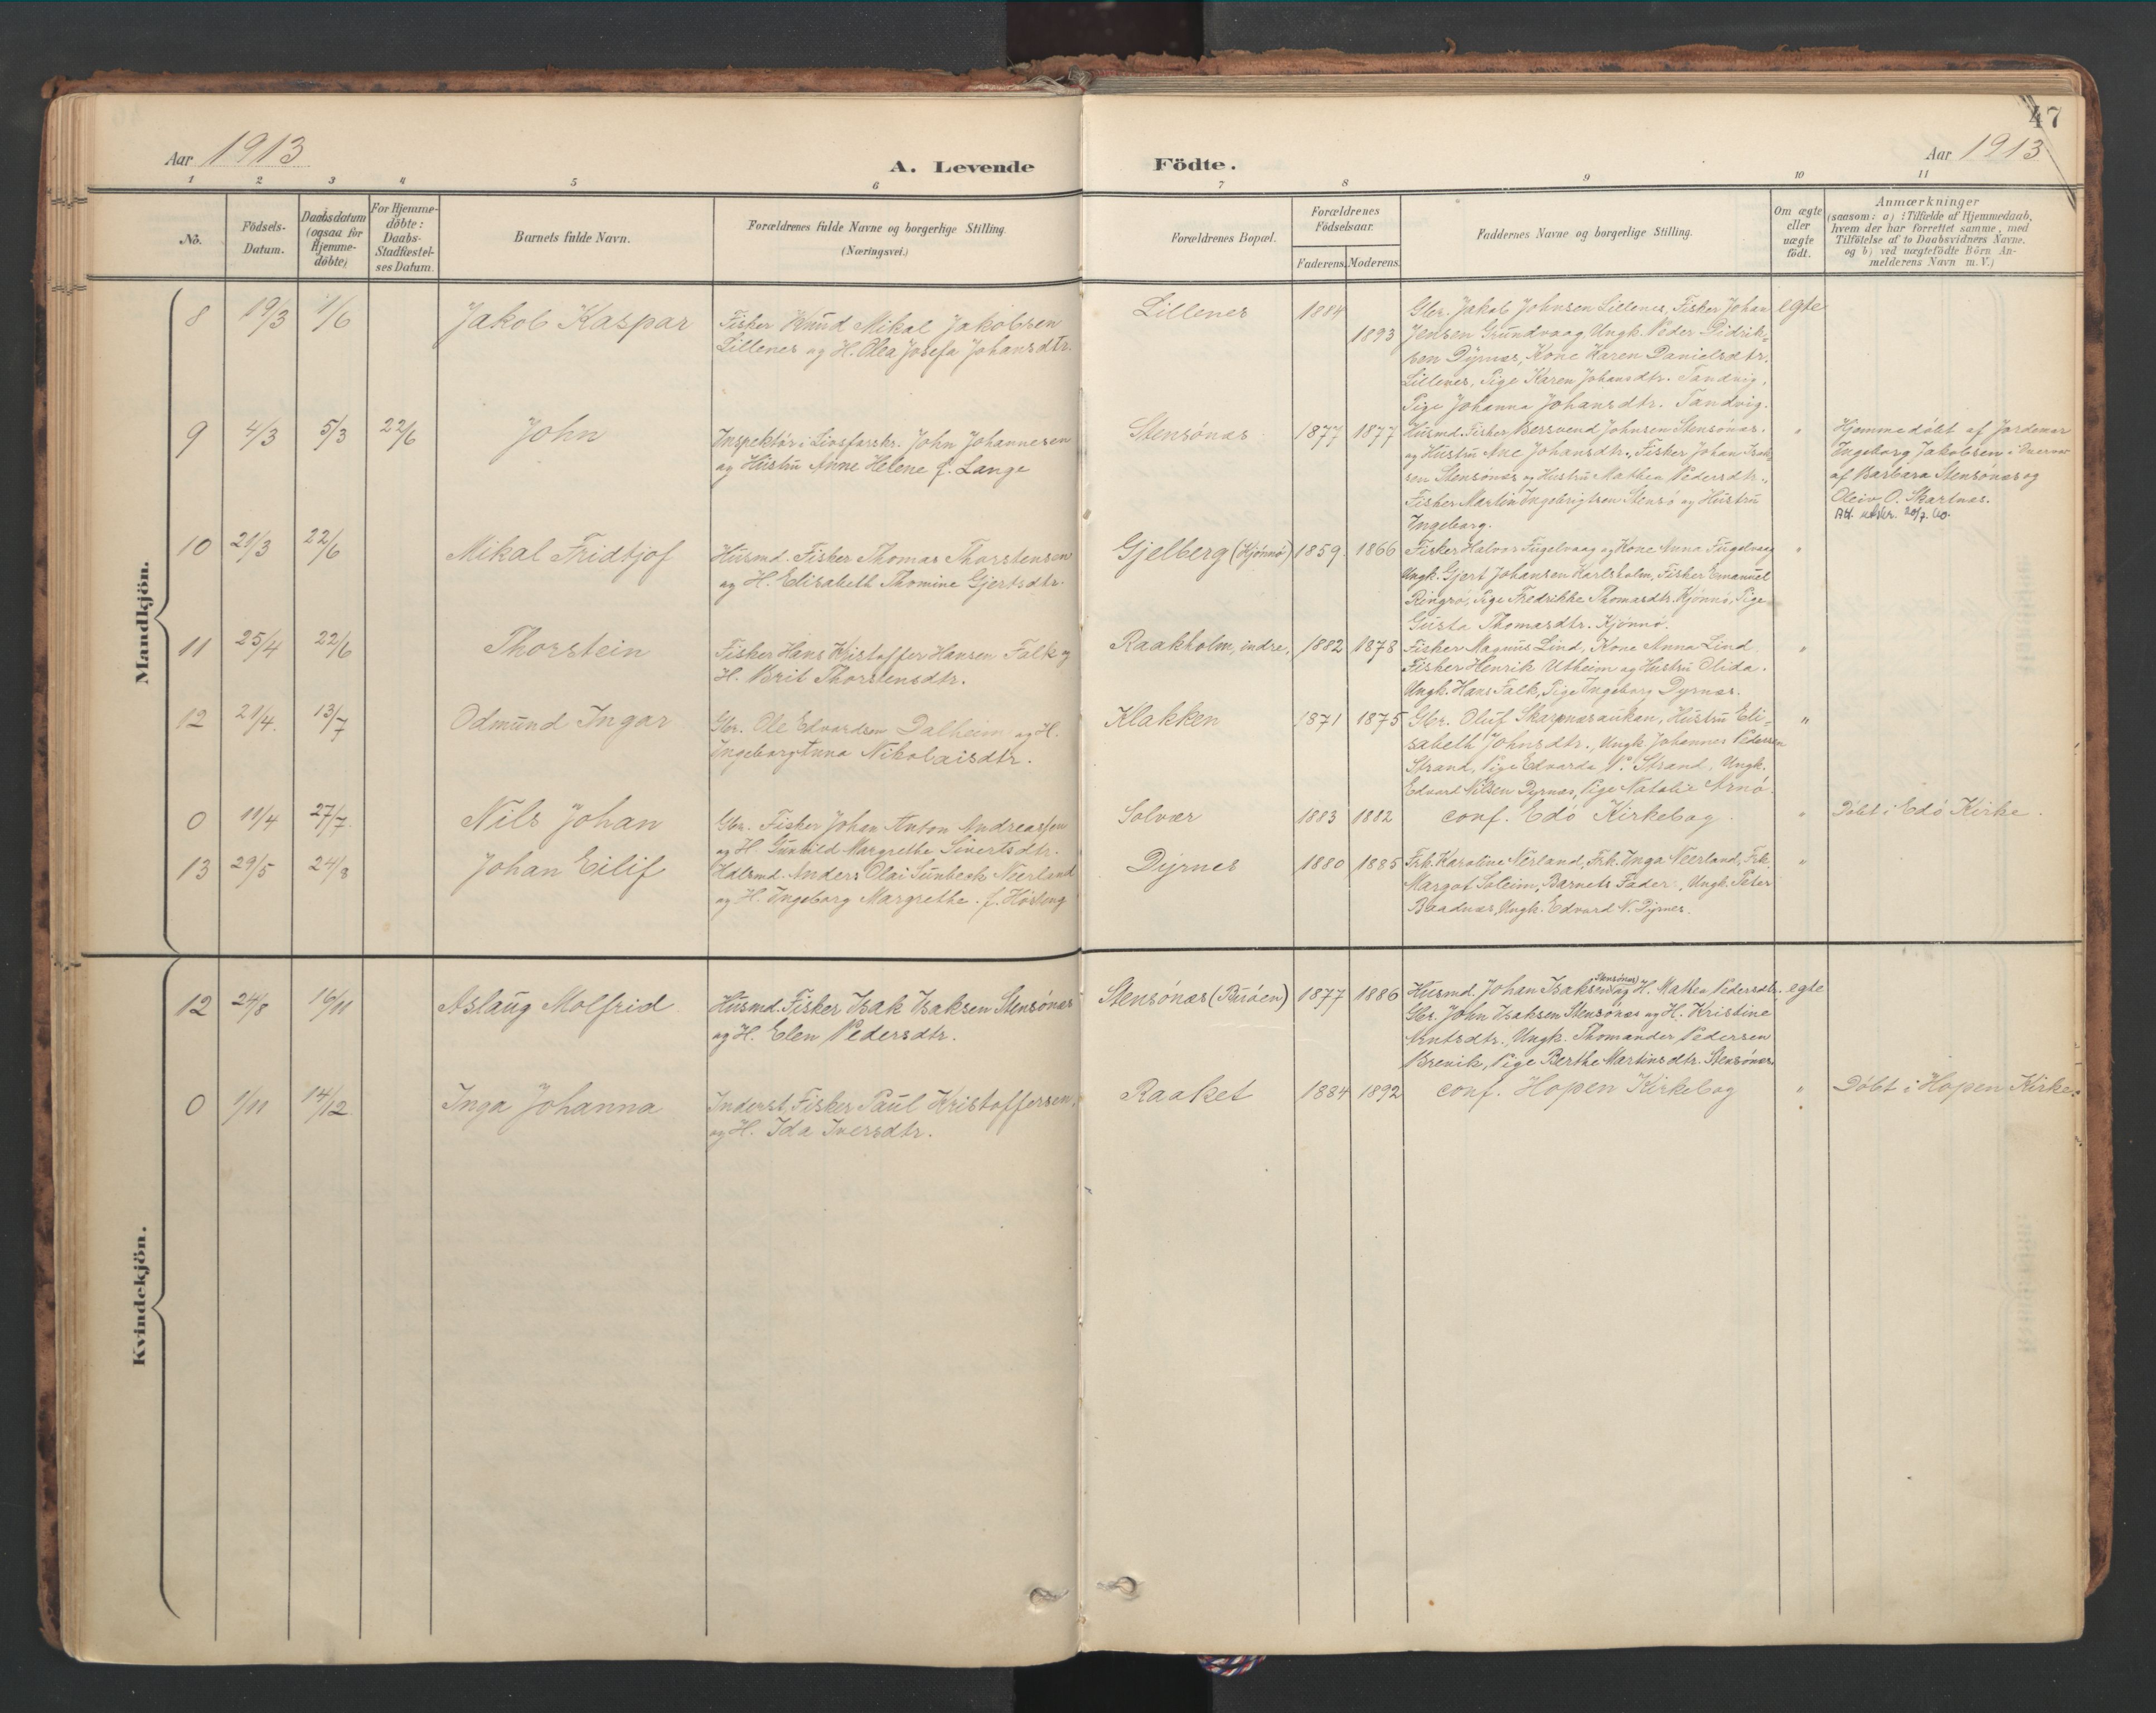 47
Aar 1913
A. Levende Födte.
Aar 1913
1 2 3 4 5 6 7 8 9 10 11
No.
Födsels-
Datum.
Daabsdatum
(ogsaa for
Hjemme-
döbte)
For Hjemme-
döbte:
Daabs-
Stadfæstel-
ses Datum.
Barnets fulde Navn.
Forældrenes fulde Navne og borgerlige Stilling.
(Næringsvei.)
Forældrenes Bopæl.
Forældrenes
Födselsaar.
Faderens. Moderens.
Faddernes Navne og borgerlige Stilling.
Om ægte
eller
uægte
födt.
Anmærkninger
(saasom: a) i Tilfælde af Hjemmedaab,
hvem der har forrettet samme, med
Tilföielse af to Daabsvidners Navne.
og b) ved uægtefödte Börn An-
melderens Navn m. V.)
Mandkjön.
8 19/3 1/6 Jakob Kaspar
Fisker Knud Mikal Jakobsen
Lillenes og H. Olea Josefa Johansdtr.
Lillenes 1884 1893
Gbr. Jakob Johnsen Lillenes, Fisker Johan
Jensen Grundvaag, Ungk. Peder Didrik-
sen Dyrnes, Kone Karen Danielsdtr.
Lillenes, Pige Karen Johansdtr. Tandvig,
Pige Johanna Johansdtr. Tandvig.
egte
9 4/3 5/3 22/6 John
Inspektör i Livsforsikr. John Johannesen
og Hustru Anne Helene f. Lange
Stensönæs 1877 1877
Husmd. Fisker Bersvend Johnsen Stensönæs.
og Hustru Ane Johansdtr., Fisker Johan Isak-
sen Stensönæs og Hustru Mathea Pedersdtr.,
Fisker Martin Ingebrigtsen Stensö og Hustru
Ingeborg.
"
Hjemmedöbt af Jordemor
Ingeborg Jakobsen i Nærvær
af Barbara Stensönæs og
Oleiv O. Skartnes.
Att. utskr. 20/7. 60.
10 21/3 22/6 Mikal Fridtjof
Husmd. Fisker Thomas Thorstensen
og H. Elisabeth Thomine Gjertsdtr.
Gjelberg (Kjönnö) 1859. 1866
Fisker Halvor Fugelvaag og Kone Anna Fugelvaag
Ungk. Gjert Johansen Karlsholm, Fisker Emanuel
Ringsö, Pige Fredrikke Thomasdtr. Kjönnö, Pige
Gusta Thomasdtr. Kjönnö.
"
11 25/4 22/6 Thorstein
Fisker Hans Kristoffer Hansen Falk og
H. Brit Thorstensdtr.
Raakholm, indre, 1882 1878
Fisker Magnus Lind, Kone Anna Lind
Fisker Henrik Utheim og Hustru Olida.
Ungk. Hans Falk, Pige Ingeborg Dyrnæs.
"
12 21/4. 13/7 Odmund Ingar
Gbr. Ole Edvardsen Dalheim og H.
Ingeborg Anna Nikolaisdtr.
Klakken 1871 1875
Gbr. Oluf Skarpnæsauken, Hustru Eli-
sabeth Johnsdtr., Ungk. Johannes Pedersen
Strand, Pige Edvarda N. Strand, Ungk.
Edvard Nilsen Dyrnæs, Pige Natalie Arnö.
"
0 11/4 27/7. Nils Johan
Gbr. Fisker Johan Anton Andreassen
og H. Gunhild Margrethe Sivertsdtr.
Solvær 1883 1882
conf. Edö Kirkebog.
"
Döbt i Edö Kirke.
13 29/5 24/8 Johan Eilif
Hdlsmd. Anders Olai Sunbeck Neerland
og H. Ingeborg Margrethe. f.
Dyrnes 1880 1885
Frk. Karoline Nerland, Frk. Inga Neerland, Frk.
Margot Soleim, Barnets Fader, Ungk. Peter
Baadnæs, Ungk. Edvard N. Dyrnes.
"
Kvindekjön.
12 24/8 16/11 Aslaug Molfrid
Husmd. Fisker Isak Isaksen Stensönæs
og H. Elen Pedersdtr.
Stensönæs (Buöen) 1877 1886
Husmd. Johan Isaksen (Stensönæs) og H. Mathea Pedersdtr.
Gbr. John Isaksen Stensönæs og H. Kristine
Arntsdtr., Ungk. Thomander Pedersen
Brevik, Pige Berthe Martinsdtr. Stensönæs.
egte
0 1/11 14/12 Inga Johanna
Inderst, Fisker Paul Kristoffersen
og H. Ida Iversdtr.
Raaket 1884 1892
conf. Hopen Kirkebog
"
Döbt i Hopen Kirke.